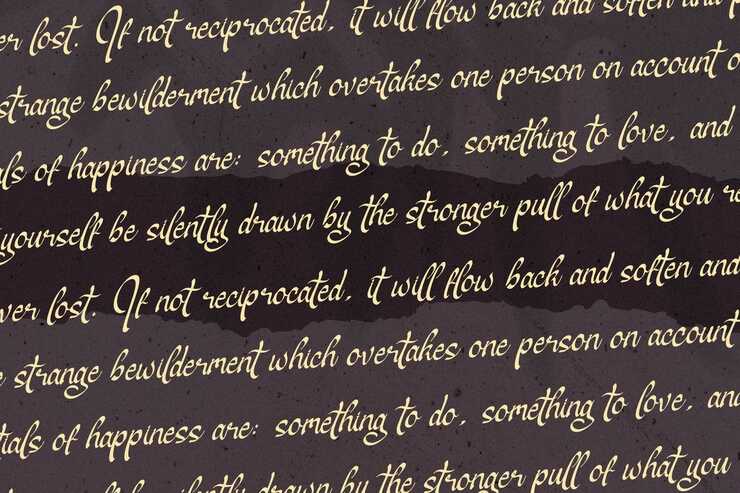 er lost. If not reciprocated, it will flow back and soften and
strange bewilderment which overtakes one person on account o
ls of happiness are: something to do, something to love, and
yourself be silently drawn by the stronger pull of what you re
ver lost. If not reciprocated, it will flow back and soften and
e strange bewilderment which overtakes one person on account
tials of happiness are: something to do, something to love, and
silently drawn by the stronger pull of what you